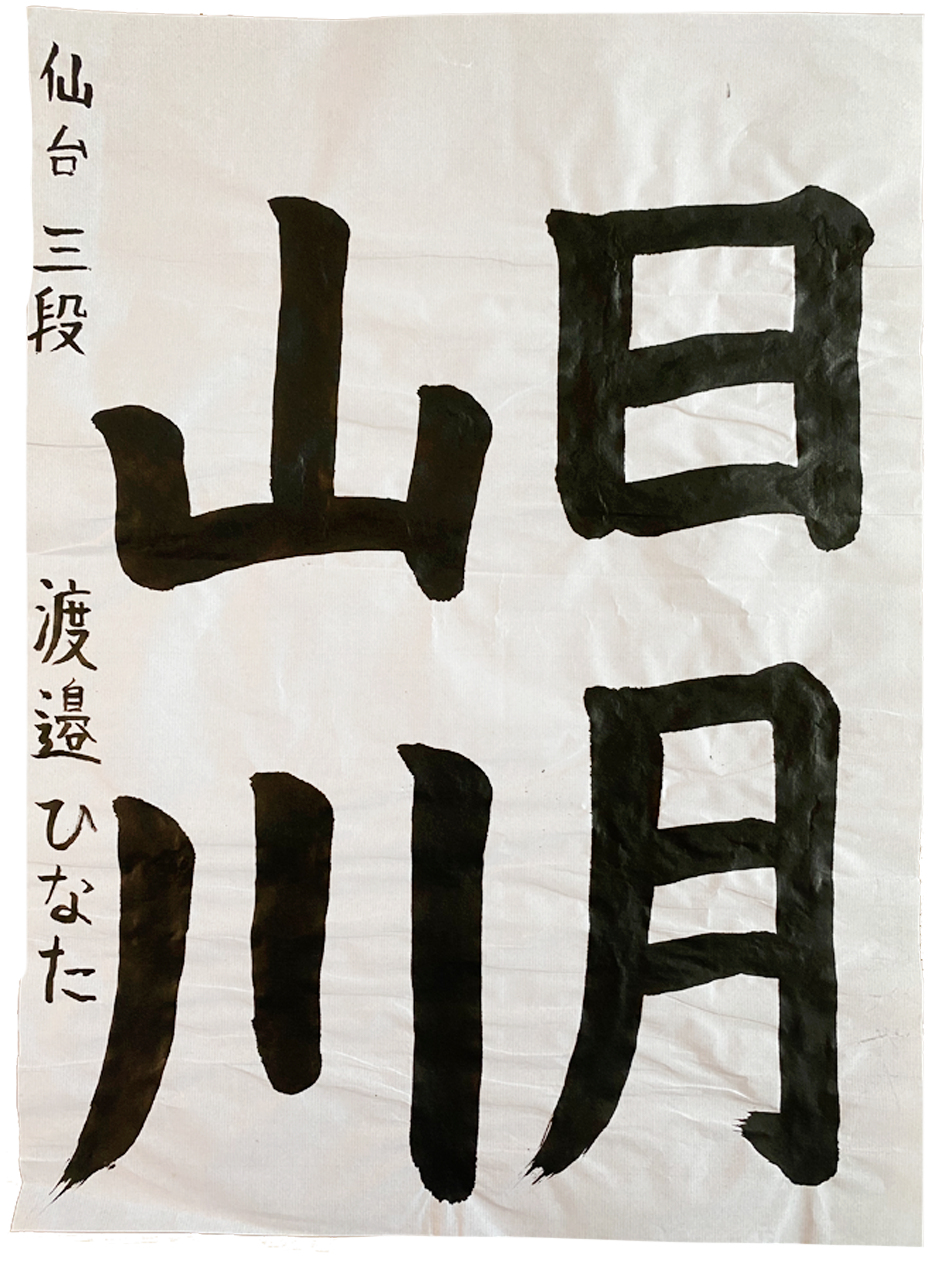 日月
山川
仙台 三段 渡邉ひなた